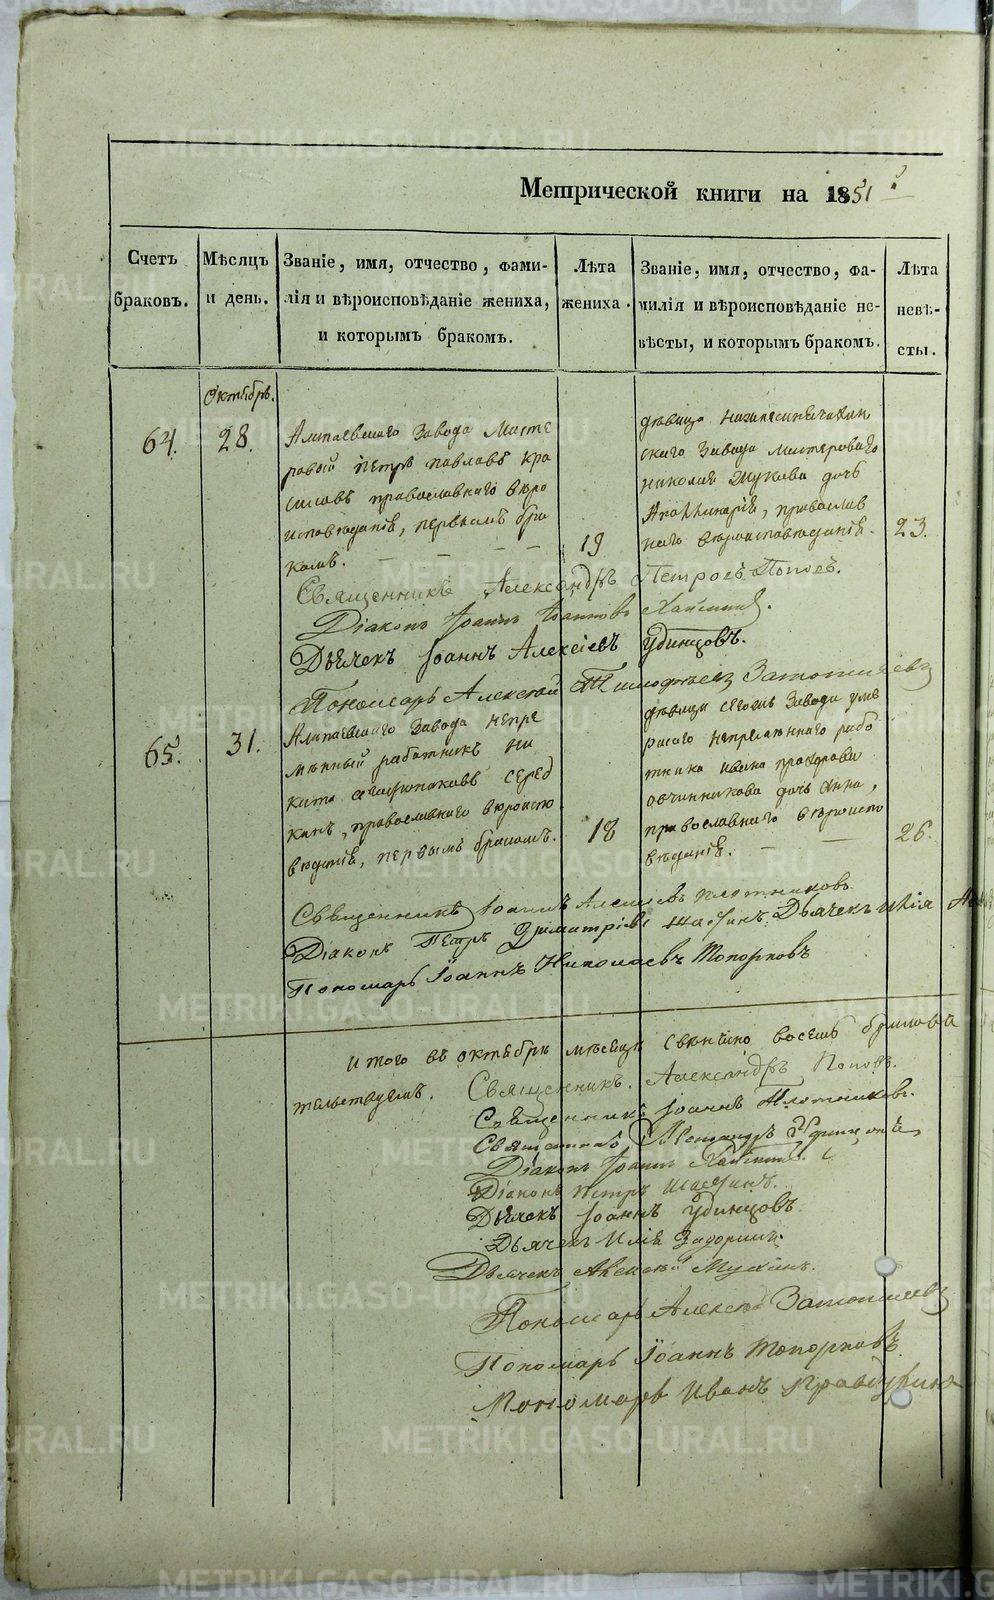 Метрической книги на 1851
Счетъ браковъ.
Мѣсяцъ и день.
Званіе, имя, отчество, фами-
лія и вѣроисповѣданіе жениха,
и которымъ бракомъ.
Лѣта жениха.
Званіе, имя, отчество, фа-
милія и вѣроисповѣданіе не-
вѣсты, и которымъ бракомъ.
Лѣта невѣ-
сты.
Октябрь.
64.
28.
Алапаевскаго Завода Масте
ровый Петръ Павловъ Кра
силовъ православнаго вѣро
исповѣданія, первымъ бра
комъ.
19
дѣвица
скаго Завода мастероваго
Николая Жукова дочь
Аполлинарія, православ
наго вѣроисповѣданія.
23.
Священникъ Александръ Петровъ Поповъ.
Діаконъ Іоаннъ Іоанновъ
Дьячекъ Іоаннъ Алексіевъ Удинцовъ.
Пономарь Алексѣй Тимофѣевъ
65.
31.
Алапаевскаго Завода непре
мѣнный работникъ Ни
кита Серед
кинъ, православнаго вѣроиспо
вѣданія, первымъ бракомъ.
18
дѣвица сегожъ Завода уме
ршаго непремѣннаго рабо
тника Ивана Прохорова
Овчинникова дочь Анна,
православнаго вѣроиспо
вѣданія.
26.
Священникъ Іоаннъ Алексіевъ Плотниковъ
Діаконъ Петръ Димитріевъ Шастинъ. Дьячекъ Илія
Пономарь Іоаннъ Николаевъ Топорковъ
Итого въ октябрѣ мѣсяцѣ свѣнчано восемь браковъ
Священникъ Александръ Поповъ.
Священникъ Іоаннъ Плотниковъ.
Священникъ Александръ Удинцовъ
Діаконъ Іоаннъ
Діаконъ Петръ Шастинъ.
Дьячекъ Іоаннъ Удинцовъ.
Дьячекъ Илія Задоринъ.
Дьячекъ Алексѣй Мухинъ.
Пономарь Алексѣй
Пономарь Іоаннъ Топорковъ
Пономарь Иванъ
METRIKI.GASO-URAL.RU